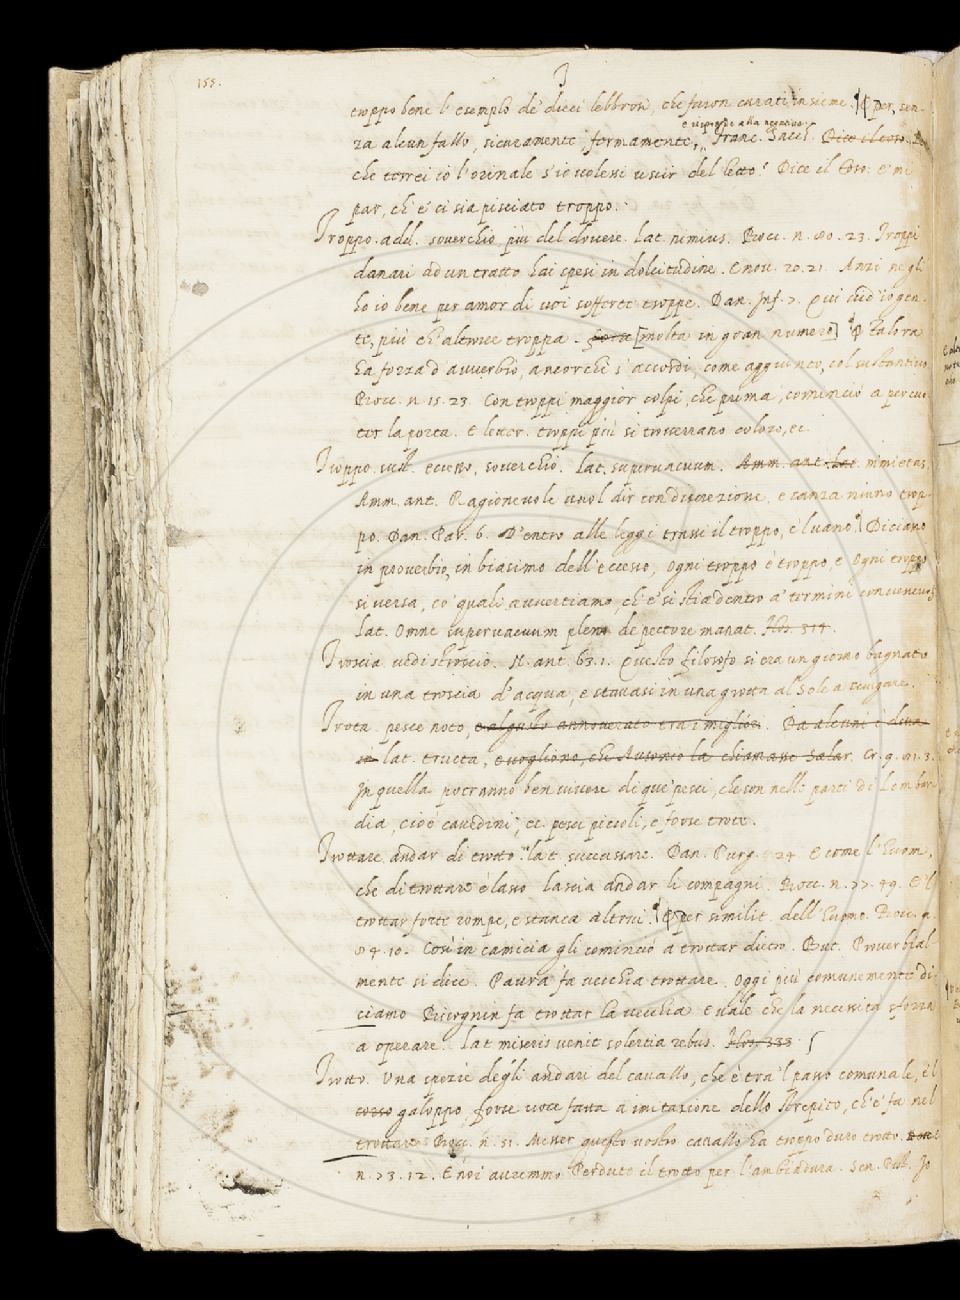 155.
T
troppo bene l'esemplo de' dieci lebbrosi, che furon curati insieme. ¶ per, sen-
e risponde alla negativa
za alcun fallo, sicuramente formamente, Franc. Sacch. Dice il toso.
che torrei io l'orinale s'io volessi uscir del letto? Dice il toso: E' mi
par, ch'e' ci sia pisciato troppo.
Troppo. add. soverchio, più del dovere. Lat. nimius. Bocc. n. 80. 23. Troppi
danari ad un tratto hai spesi in dolcitudine. E nov. 20. 21. Anzi negli
ho io bene per amor di voi sofferte troppe. Dan. Inf. 7. Qui vid' io gen-
te, più ch'altrove troppa. forse [molta in gran numero] ¶ talora
ha forza d'avverbio, ancorchè s'accordi, come aggiunto, col sustantivo
Bocc. n. 15. 23. Con troppi maggior colpi, che prima, cominciò a percuo-
ter la porta. E letter. troppi più si troverranno coloro, ec.
Troppo. sust. eccesso, soverchio. Lat. supervacuum. Amm. ant. Lat. nimietas
Amm. ant. Ragionevole vuol dir con discrezione, e sanza niuno trop-
po. Dan. Par. 6. D'entro alle leggi trassi il troppo, e 'l vano. Diciamo
in proverbio, in biasimo dell'eccesso, ogni troppo è troppo, e Ogni troppo
si versa, co' quali avvertiamo, ch'e' si stia dentro a' termini convenevoli
Lat. Omne supervacuum pleno de pectore manat.
Troscia. vedi stroscio. N. ant. 63. 1. Questo filosofo si era un giorno bagnato
in una troscia d'acqua, e stavasi in una grotta al Sole a asciugare.
Trota. pesce noto, e al gusto annoverato tra i migliori. Da alcuni è detta
in lat. tructa, e vogliono, che Ausonio la chiamasse Salar. Cr. 9. 81. 3.
In quella potranno ben vivere di que' pesci, che son nelle parti di Lombar-
dia, cioè cavedini, ec. pesci piccoli, e forse trote.
Trottare. andar di trotto. Lat. succussare. Dan. Purg. 24. E come l'huom,
che di trottare è lasso lascia andar li compagni. Bocc. n. 77. 49. E 'l
trottar forte rompe, e stanca altrui. ¶ per similit. dell'huomo. Bocc. n.
84. 10. Così in camicia gli cominciò a trottar dietro. But. Proverbial-
mente si dice. Paura fa vecchia trottare. Oggi più comunemente di-
ciamo Bisognin fa trottar la vecchia. E vale che la necessità sforza
a operare. Lat. miseris venit solertia rebus. Flos. 333
Trotto. Una spezie degli andari del cavallo, che è tra 'l passo comunale, e 'l
corso galoppo, forse voce fatta a imitazione dello strepito, ch'e' fa nel
trottare Bocc. n. 51. Messer questo vostro cavallo ha troppo duro trotto.
n. 73. 12. E noi avremmo Perduto il trotto per l'ambiadura. Sen. Pist. Io